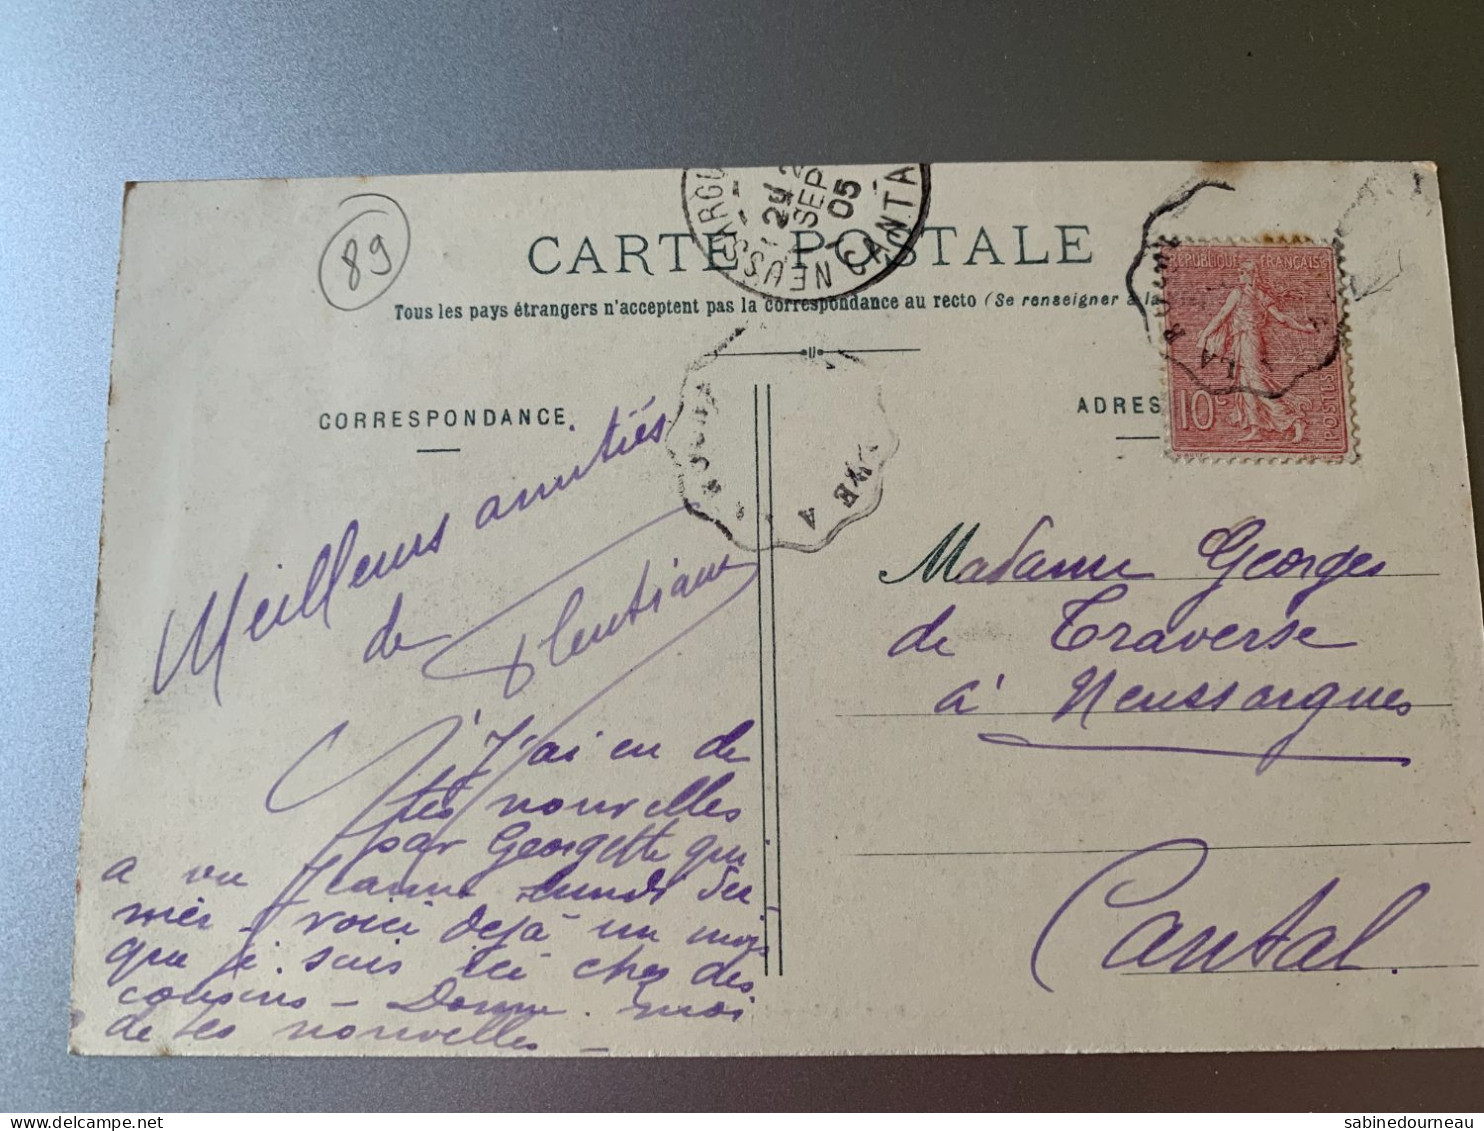 89
NEUSSARGU CANTA
29
SEP
05
CARTE POSTALE
Tous les pays étrangers n'acceptent pas la correspondance au recto (Se renseigner à la
CORRESPONDANCE.
ADRES
REPUBLIQUE FRANÇAISE
10c
POSTES
LA ROCHE
Meilleurs amitiés
de
J'ai eu de
tes nouvelles
par Georgette qui
a vu Jeanne lundi der
nier. voici déjà un mois
que je suis ici chez des
cousins - Donne-moi
de tes nouvelles -
Madame Georges
de Traverse
à Neussargues
Cantal.
sabinedourneau